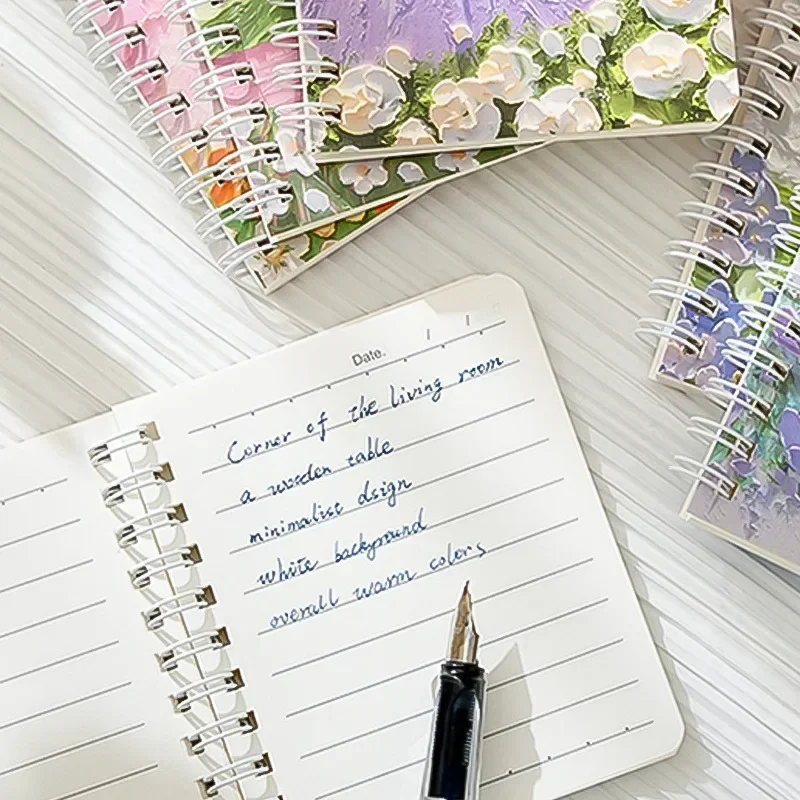 Date. / /
Corner of the living room
a wooden table
minimalist dsign
white background
overall warm colors